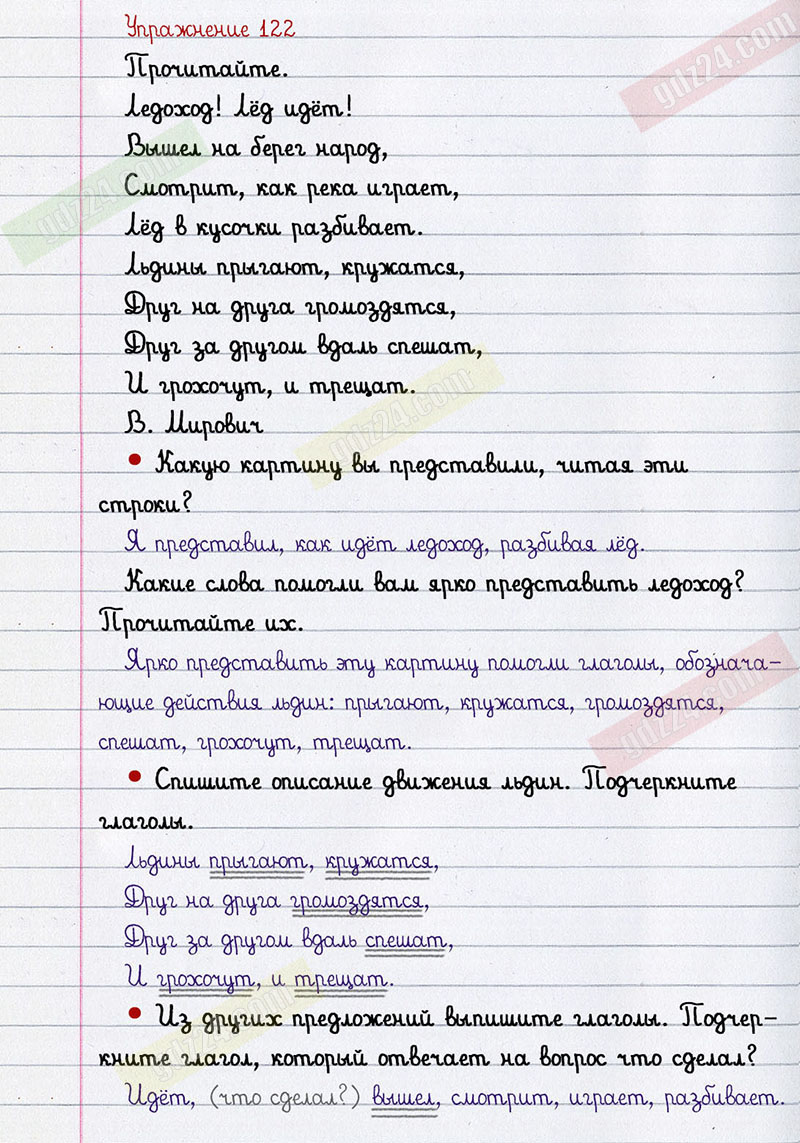 Упражнение 122
Прочитайте.
Ледоход! Лёд идёт!
Вышел на берег народ,
Смотрит, как река играет,
Лёд в кусочки разбивает.
Льдины прыгают, кружатся,
Друг на друга громоздятся,
Друг за другом вдаль спешат,
И грохочут, и трещат.
В. Мирович
• Какую картину вы представили, читая эти
строки?
Я представил, как идёт ледоход, разбивая лёд.
Какие слова помогли вам ярко представить ледоход?
Прочитайте их.
Ярко представить эту картину помогли глаголы, обознача-
ющие действия льдин: прыгают, кружатся, громоздятся,
спешат, грохочут, трещат.
• Спишите описание движения льдин. Подчеркните
глаголы.
Льдины прыгают, кружатся,
Друг на друга громоздятся,
Друг за другом вдаль спешат,
И грохочут, и трещат.
• Из других предложений выпишите глаголы. Подчер-
кните глагол, который отвечает на вопрос что сделал?
Идёт, (что сделал?) вышел, смотрит, играет, разбивает.
gdz24.com
gdz24.com
gdz24.com
gdz24.com
gdz24.com